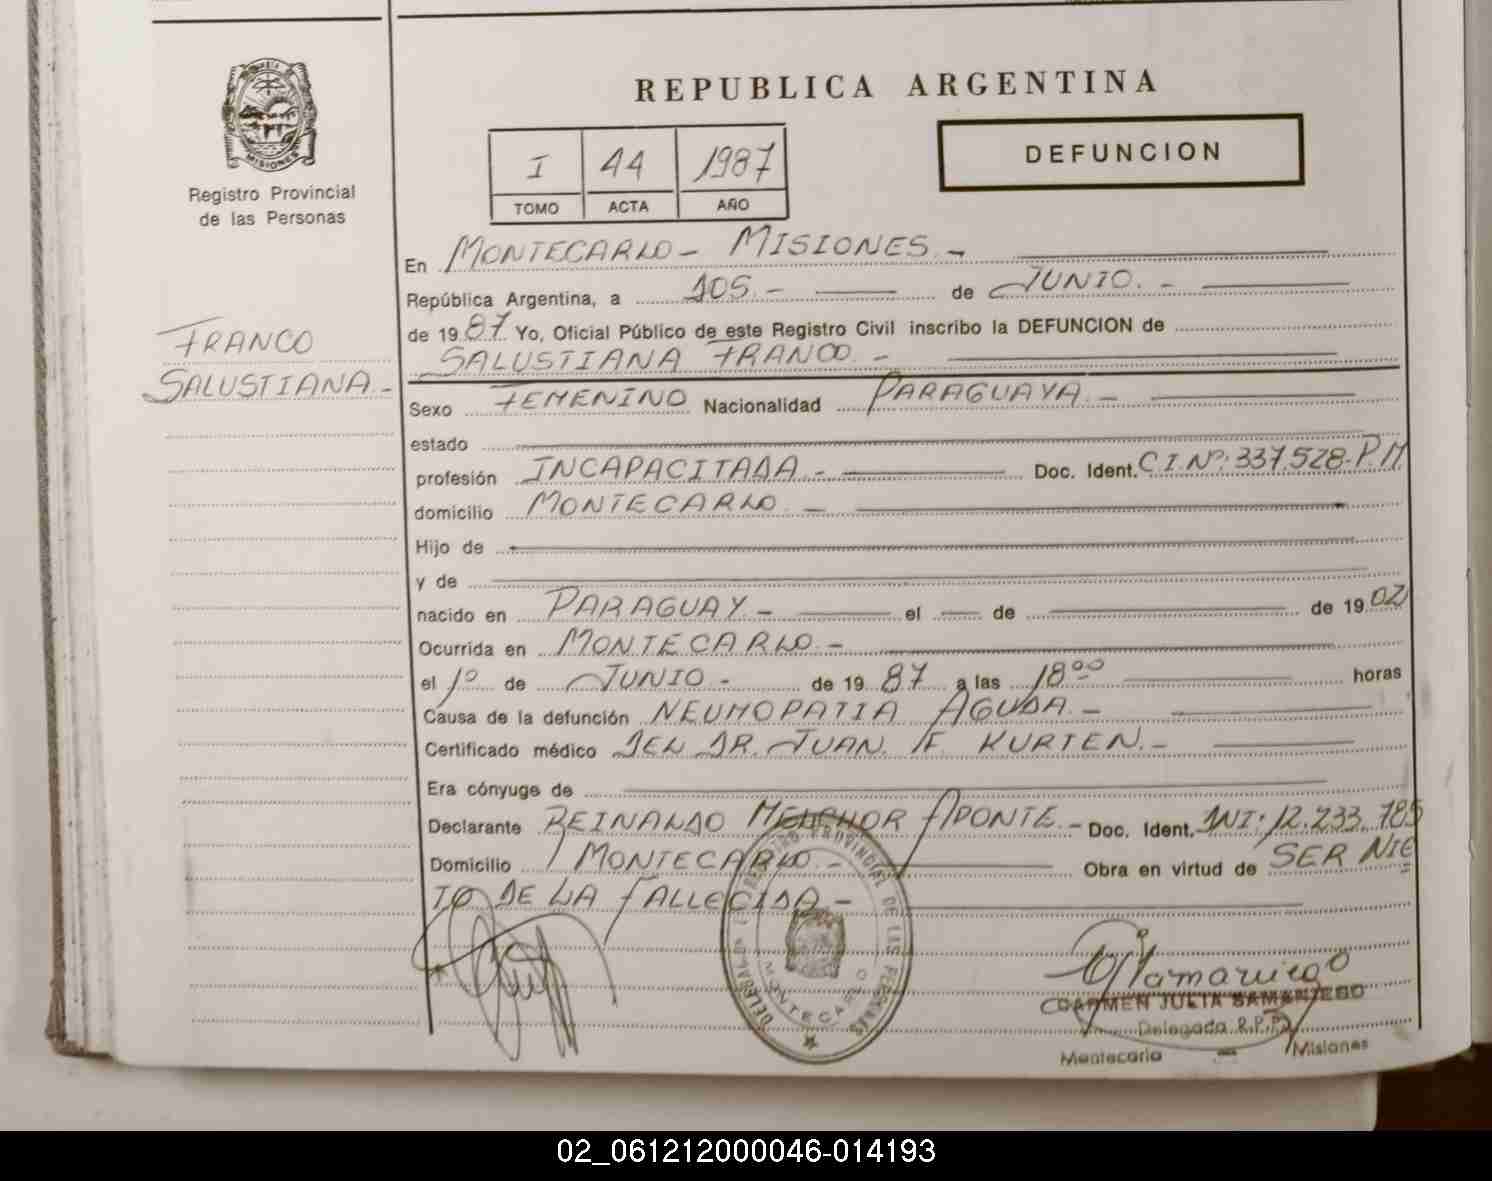 REPUBLICA ARGENTINA
MISIONES
Registro Provincial
de las Personas
I 44 1987
TOMO ACTA AÑO
DEFUNCION
FRANCO
SALUSTIANA.-
En MONTECARLO - MISIONES.-
República Argentina, a DOS.- de JUNIO.-
de 1987 Yo, Oficial Público de este Registro Civil inscribo la DEFUNCION de
SALUSTIANA FRANCO.-
Sexo FEMENINO Nacionalidad PARAGUAYA.-
estado
profesión INCAPACITADA.- Doc. Ident. C.I.Nº: 337.528-P.M.
domicilio MONTECARLO.-
Hijo de
y de
nacido en PARAGUAY.- el de de 1902
Ocurrida en MONTECARLO.-
el 1º de JUNIO.- de 1987 a las 18ºº horas
Causa de la defunción NEUMOPATIA AGUDA.-
Certificado médico DEL DR. JUAN. F. KURTEN.-
Era cónyuge de
Declarante REINALDO MELCHOR APONTE.- Doc. Ident. DNI: 12.233.785
Domicilio MONTECARLO.- Obra en virtud de SER NIE
TO DE LA FALLECIDA.-
REGISTRO PROVINCIAL DE LAS PERSONAS
MONTECARLO
CARMEN JULIA SAMANIEGO
Delegada R.P.P.
Montecarlo - Misiones
02_061212000046-014193